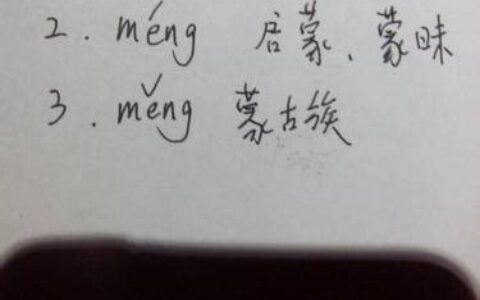 2. méng 启蒙、蒙昧
3. měng 蒙古族